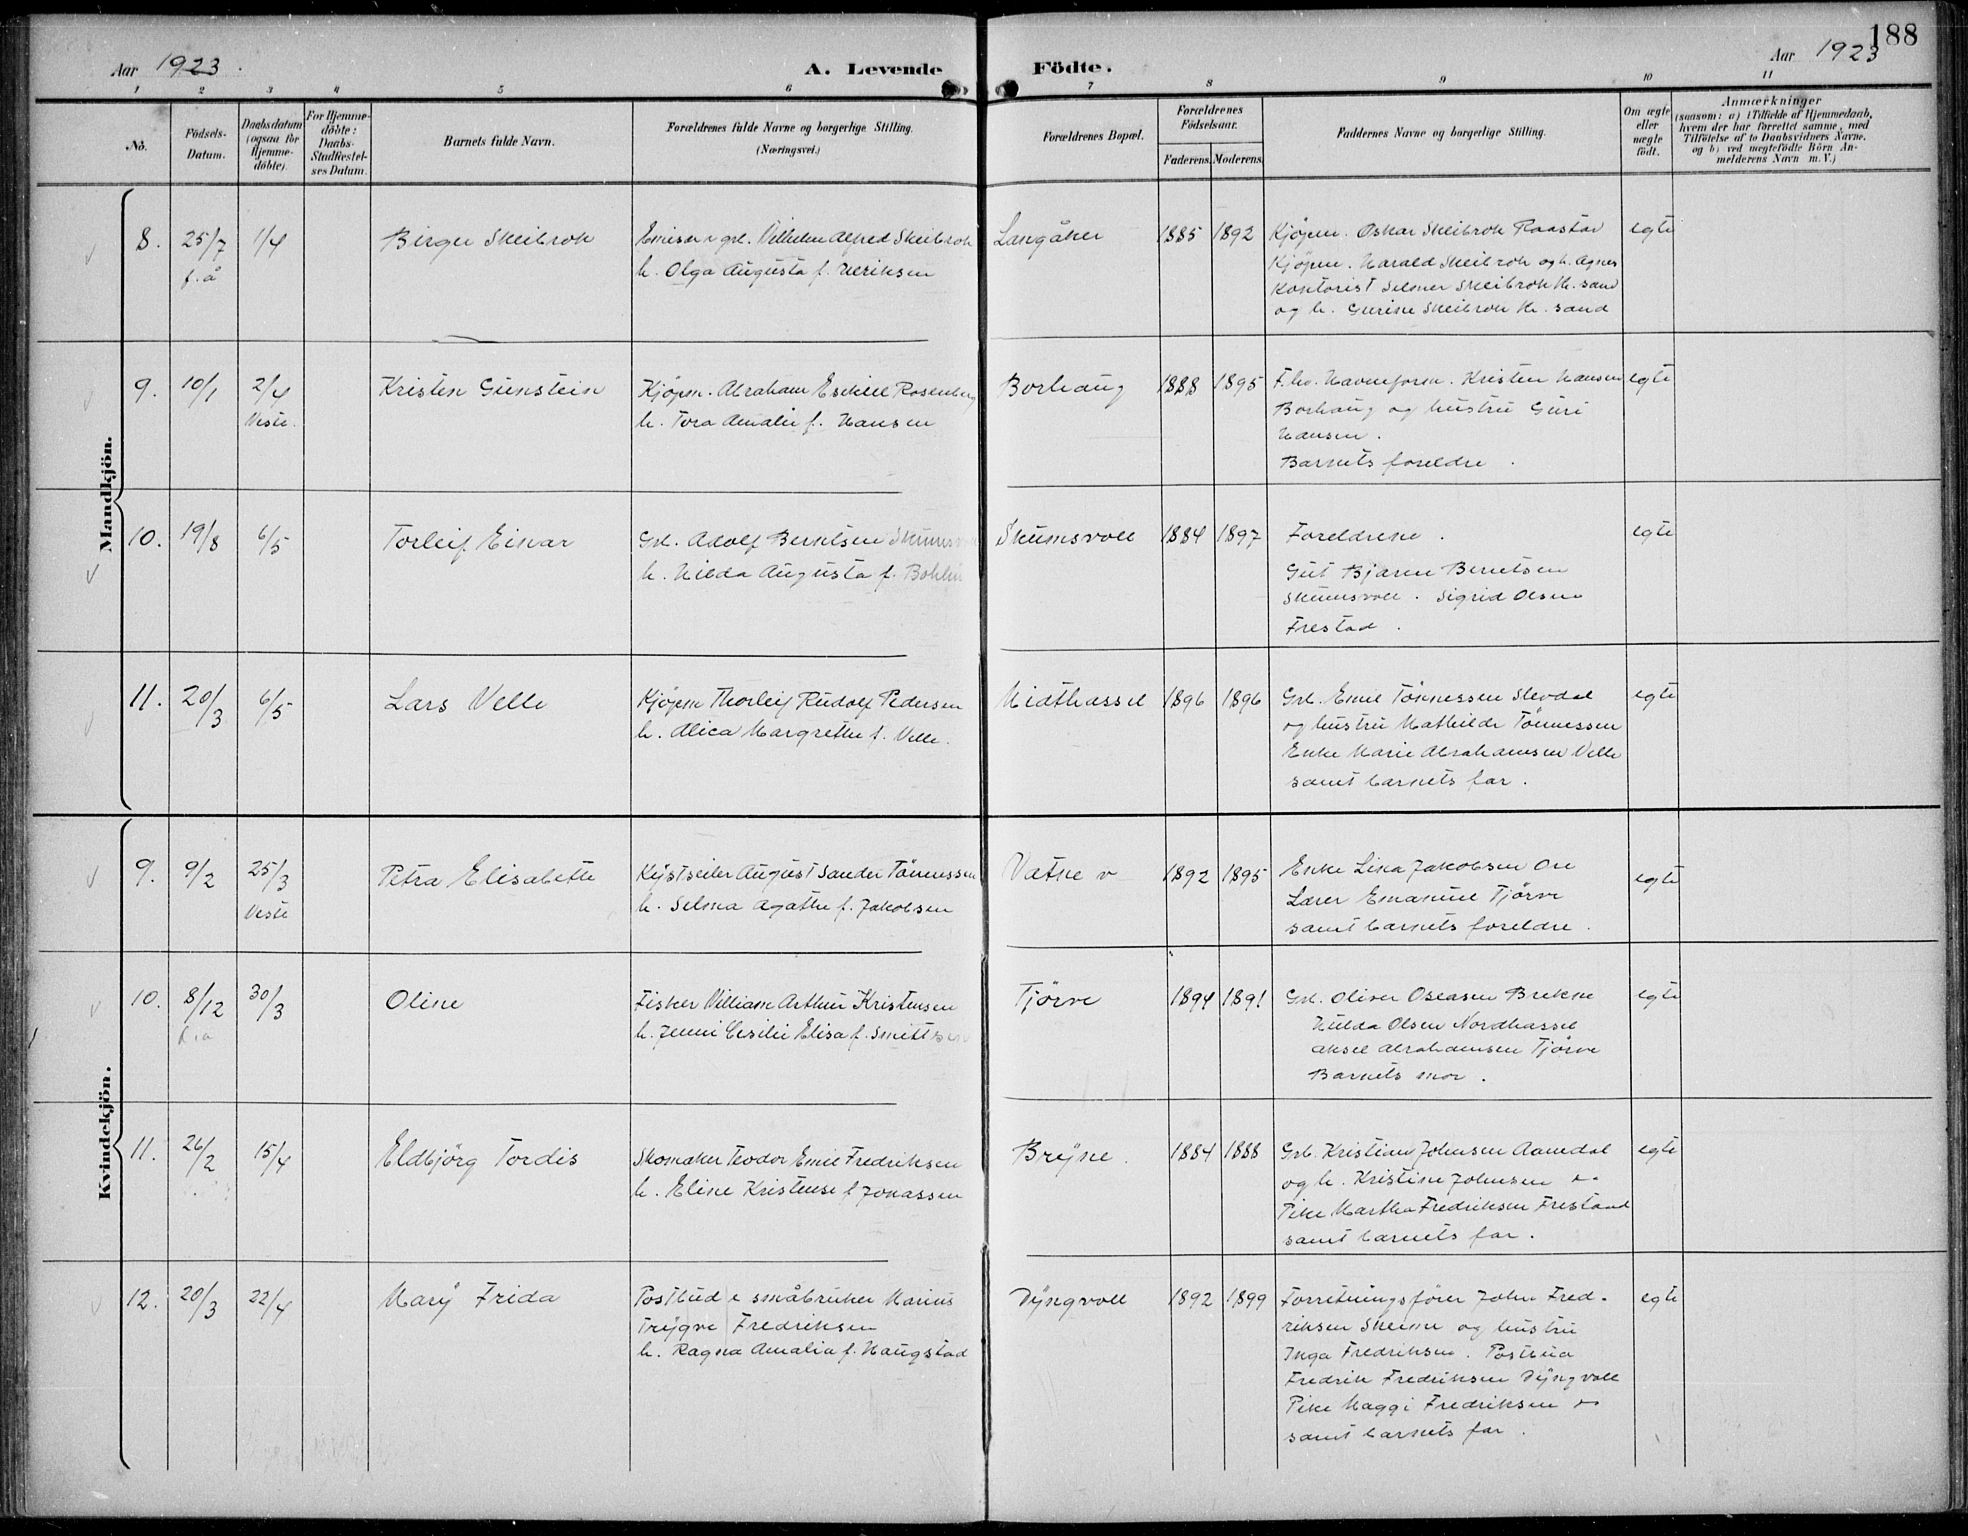 188
Aar 1923.
A. Levende
Födte.
Aar 1923
1 2 3 4 5 6 7 8 9 10 11
No.
Födsels-
Datum.
Daabsdatum
(ogsaa for
Hjemme-
döbte).
For Hjemme-
döbte:
Daabs-
Stadfæstel-
ses Datum.
Barnets fulde Navn.
Forældrenes fulde Navne og borgerlige Stilling.
(Næringsvei.)
Forældrenes Bopæl.
Forældrenes
Födselsaar.
Faderens. Moderens.
Faddernes Navne og borgerlige Stilling.
Om ægte
eller
uægte
födt.
Anmærkninger
(saasom: a) i Tilfælde af Hjemmedaab,
hvem der har forrettet samme, med
Tilföielse af to Daabsvidners Navne.
og b) ved uægtefödte Börn An-
melderens Navn m. V.)
Mandkjön.
8. 25/7 1/4 Birger Skeibrok
f. å
Emisær v grb. Vilhelm Alfred Skeibrok
h. Olga Augusta f. Ulriksen
Langåker 1885 1892
Kjøpm. Oskar Skeibrok Raastad
Kjøpm. Harald Skeibrok og h. Agnes
Kontorist Selmer Skeibrok Kr. sand
og h. Gurine Skeibrok Kr. sand
egte
9. 10/1 2/4 Kristen Gunstein
Viste.
Kjøpm. Abraham Esekiel Rosenberg
h. Tora Amalie f. Hansen
Borhaug 1888 1895
F.hv. Havneform. Kristen Hansen
Borhaug og hustru Guri
Hansen.
Barnets foreldre.
egte
10. 19/8 6/5 Torleif Einar
Grb. Adolf Berntsen
h. Hilda Augusta f.
Skumsvoll 1884 1897
Foreldrene.
Gut Bjarne Berntsen
Skumsvoll. Sigrid Olsen
Frestad.
egte
11. 20/3 6/5 Lars Velle
Kjøpm Thorleif Rudolf Pedersen
h. Alica Margrethe f. Velle.
Midthassel 1896 1896
Grb. Emil Tönnessen Stevdal
og hustru Mathilde Tönnessen
Enke Marie Abrahamsen Velle
samt barnets far.
egte
Kvindekjön.
9. 9/2 25/3 Petra Elisabette
Viste
Kystseiler August Sander Tönnessen
h. Selma Agathe f. Jakobsen
Vatne v 1892 1895
Enke Lina Jakobsen Ore
Lærer Emanuel Tjörve
samt barnets foreldre.
egte
10. 8/12 30/3 Oline
f. å
Fisker Villiam Arthur Kristensen
h. Jenni Cesilie Elisa f.
Tjörve 1894 1891
Grb. Oliver Oseasen Brekne
Hulda Olsen Nordhassel
Aksel Abrahamsen Tjörve
Barnets mor.
egte
11. 26/2 15/4 Eldbjörg Tordis
Skomaker Teodor Emil Fredriksen
h. Eline Kristense f. Jonassen
Bryne. 1884 1888
Grb. Kristian Johnsen Aamdal
og h. Kristine Johnsen
Pike Martha Fredriksen Frestaad
samt barnets far.
egte
12. 20/3 22/4 Mary Frida
Postbud v småbruker Marius
Trygve Fredriksen
h. Ragna Amalia f. Haugstad
Dyngvoll 1892 1899
Forretningsfører John Fred-
riksen Skeime og hustru
Inga Fredriksen. Postbud
Fredrik Fredriksen Dyngvoll
Pike Maggi Fredriksen
samt barnets far.
egte